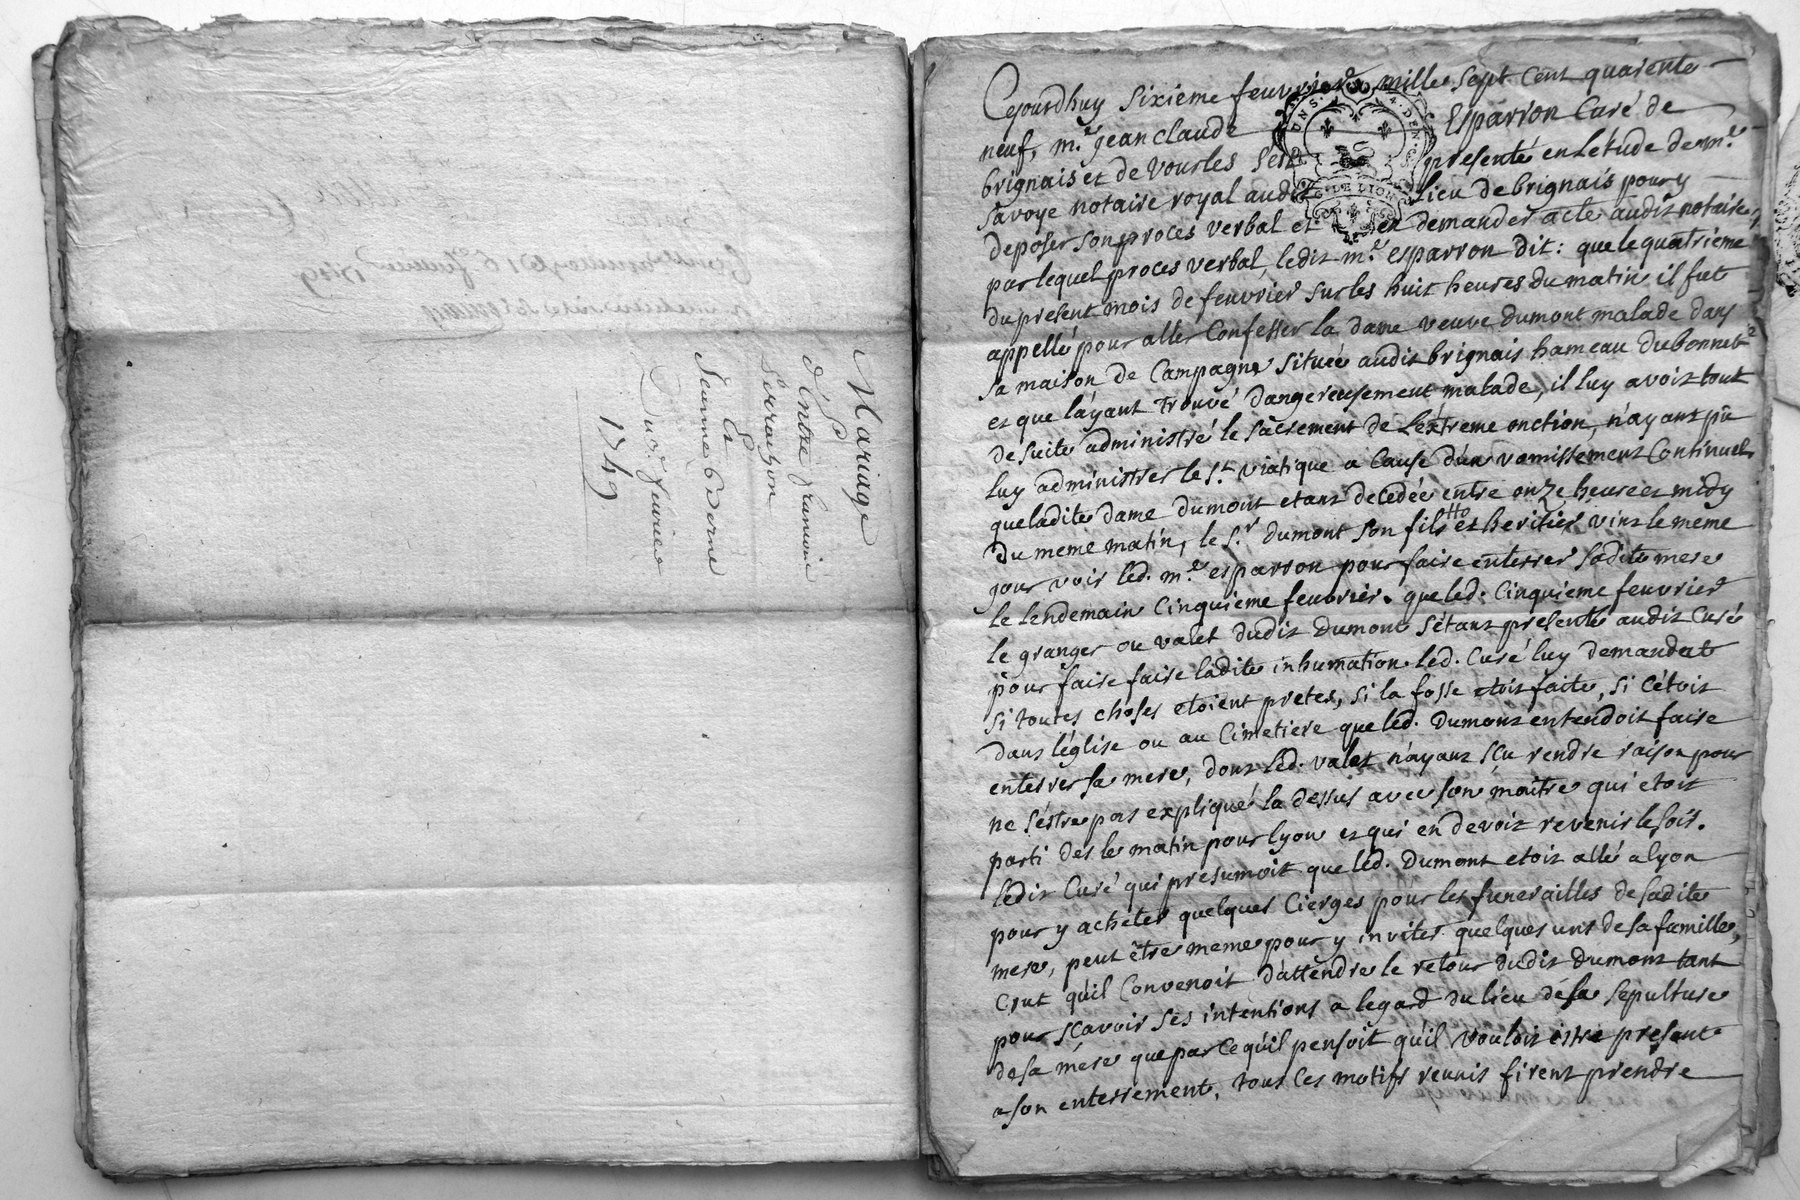 Mariage
d'Entre francois
Sevrazon
Et
Jeanne Dorne
Du 6e feuvrier
1749
Cejourdhuy sixieme feuvrier mille sept cent quarente
neuf, mre. jean claude Esparron Curé de
brignais et de vourles sest presenté en Létude de mre.
savoye notaire royal audit lieu de brignais pour y
deposer son proces verbal et en demander acte audit notaire,
par lequel proces verbal, ledit mre. esparron dit: que le quatrieme
du present mois de feuvrier sur les huit heures du matin il fut
appellé pour aller Confesser la dame veuve dumont malade dans
sa maison de Campagne située audit brignais hameau du bonnet
et que l'áyant trouvé dangereusement malade, il luy avoit tout
de suite administré le sacrement de L'extreme onction, n'ayant pû
luy administrer le st. viatique a Cause d'un vomissement Continuel
que ladite dame dumont etant decedée entre onze heure et midy
du meme matin, le sr. dumont son fils et heritier vint le meme
jour voir led. mre. esparron pour faire enterrer sadite mere
le lendemain Cinquieme feuvrier. que led. Cinquieme feuvrier
le granger ou valet dudit dumont s'étant presenté audit Curé
pour faire faire ladite inhumation. led. Curé luy demandat
si toutes choses etoient pretes, si la fosse etoit faite, si c'étoit
dans l'église ou au Cimetiere que led. Dumont entendoit faire
enterrer sa mere, dont led. valet n'ayant sçu rendre raison pour
ne s'éstre pas expliqué la dessus avec son maitre qui etoit
parti des le matin pour lyon et qui en devoit revenir le soir.
ledit Curé qui presumoit que led. Dumont etoit allé a lyon
pour y acheter quelques Cierges pour les funerailles de sadite
mere, peut être meme pour y inviter quelques uns de sa famille,
Crut qu'il Convenoit d'attendre le retour dudit dumont tant
pour scavoir ses intentions a legard du lieu de la sepulture
de sa mére que par ce qu'il pensoit qu'il vouloit estre present
a son enterrement, tous ces motifs reunis firent prendre